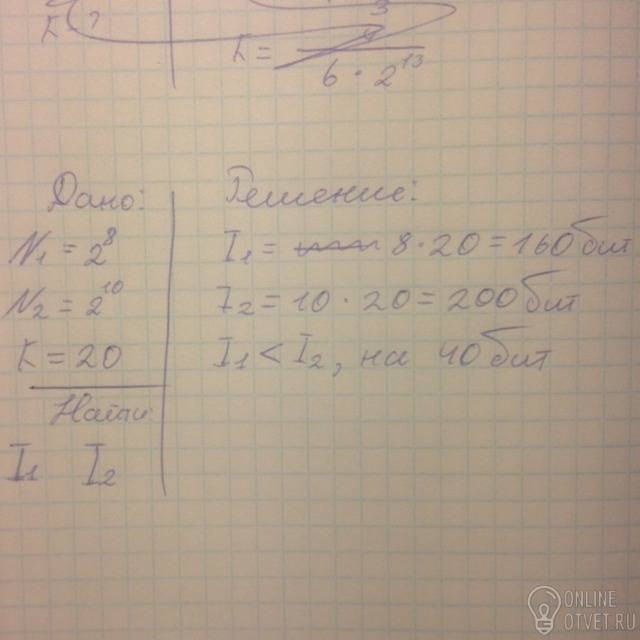 K ?
K =
6 · 2¹³
Дано:
N₁ = 2⁸
N₂ = 2¹⁰
K = 20
Найти
I₁ I₂
Решение:
I₁ = 8 · 20 = 160 бит
I₂ = 10 · 20 = 200 бит
I₁ < I₂, на 40 бит
ONLINE
OTVET.RU